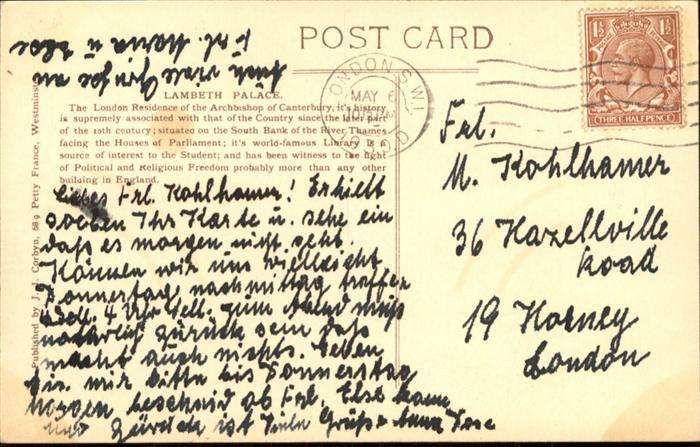 POST CARD
1½ 1½
THREE HALFPENCE
LONDON S.W.1
MAY 6
LAMBETH PALACE.
The London Residence of the Archbishop of Canterbury, it's history
is supremely associated with that of the Country since the later part
of the 12th century; situated on the South Bank of the River Thames
facing the Houses of Parliament; it's world-famous Library is a
source of interest to the Student; and has been witness to the fight
of Political and Religious Freedom probably more than any other
building in England.
Published by J. J. Corbyn, 68 9 Petty France, Westminster
Liebes Frl. Kohlhamer! Erhielt
soeben Ihr Karte u. sehe ein
daß es morgen nicht geht.
Können wir uns vielleicht
Donnerstag nachmittag treffen
4 Uhr Vell. zum Abend muß
natürlich zurück sein daß
macht auch nichts. Geben
Sie mir bitte bis Donnerstag
morgen bescheid ob Frl. Else kann
und zurück ist Viele Grüße Anna
Auch viele Grüße an
Frl. Maria u Else
Frl.
M. Kohlhamer
36 Hazellville
Road
19 Horney
London